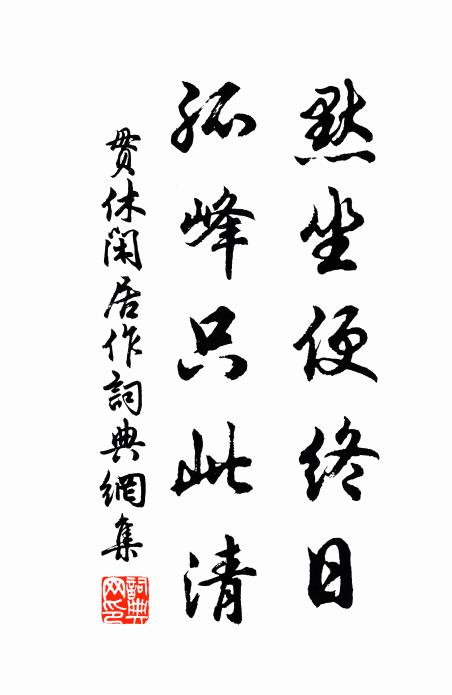 默坐便終日
孤峰只此清
貫休閑居作詞典網集
詞典網印